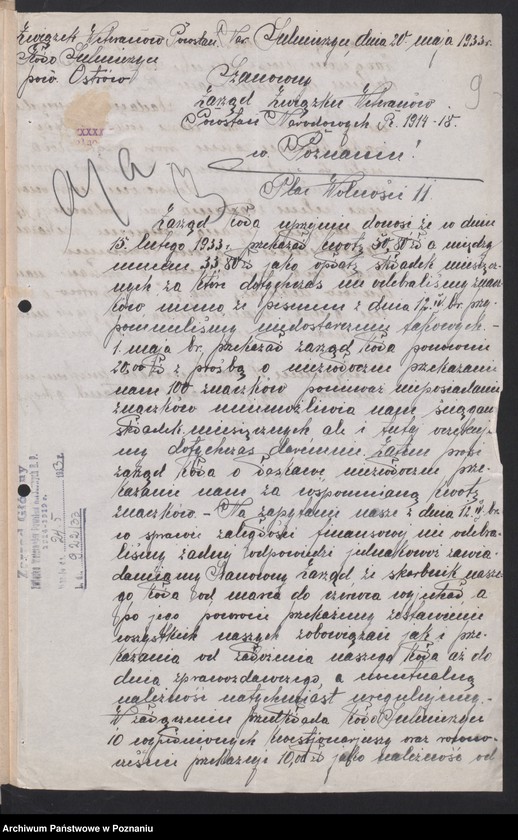 Związek Weteranów Powstań Nar.
Koło Sulmierzyce
pow. Ostrów
Sulmierzyce, dnia 20. maja 1933 r.
9
Szanowny
Zarząd Związku Weteranów
Powstań Narodowych R. 1914-18.
w Poznaniu!
Plac Wolności 11
a/a
XXXI
Zarząd Koła uprzejmie donosi że w dniu
15 lutego 1933 r. przekazał kwotę 50,80 zł a między
innemi 33,80 zł jako opłatę składek miesięcz-
nych za które dotychczas nie odebraliśmy znacz-
ków mimo że pismem z dnia 12.IV br. przy-
pomnieliśmy niedostarczenie takowych. -
1. maja br. przekazał zarząd koła ponownie
20,00 zł z prośbą o niezwłoczne przekazanie
nam 100 znaczków ponieważ nieposiadanie
znaczków uniemożliwia nam ściągan.
składek miesięcznych ale i tutaj oczekuje-
my dotychczas daremnie. Zatem prosi
zarząd Koła o łaskawe niezwłoczne prze-
kazanie nam za wspomnianą kwotę
znaczków. - Na zapytanie nasze z dnia 12.IV br.
w sprawie zaległości finansowej nie odebra-
liśmy żadnej odpowiedzi jednakowoż zawia-
damiamy Szanowny Zarząd że skarbnik nasze-
go Koła od marca do czerwca wyjechał a
po jego powrocie przekażemy zestawienie
wszystkich naszych zobowiązań jak i prze-
kazania od założenia naszego Koła aż do
dnia sprawozdawczego, a ewentualną
należność natychmiast uregulujemy. -
W załączeniu przedkłada Koło Sulmierzyce
10 wypełnionych kwestjonarjuszy oraz równo-
cześnie przekazuje 10,00 zł jako należność od
Zarząd Główny
24/5 1933 r.
L. dz. 922/33
Archiwum Państwowe w Poznaniu